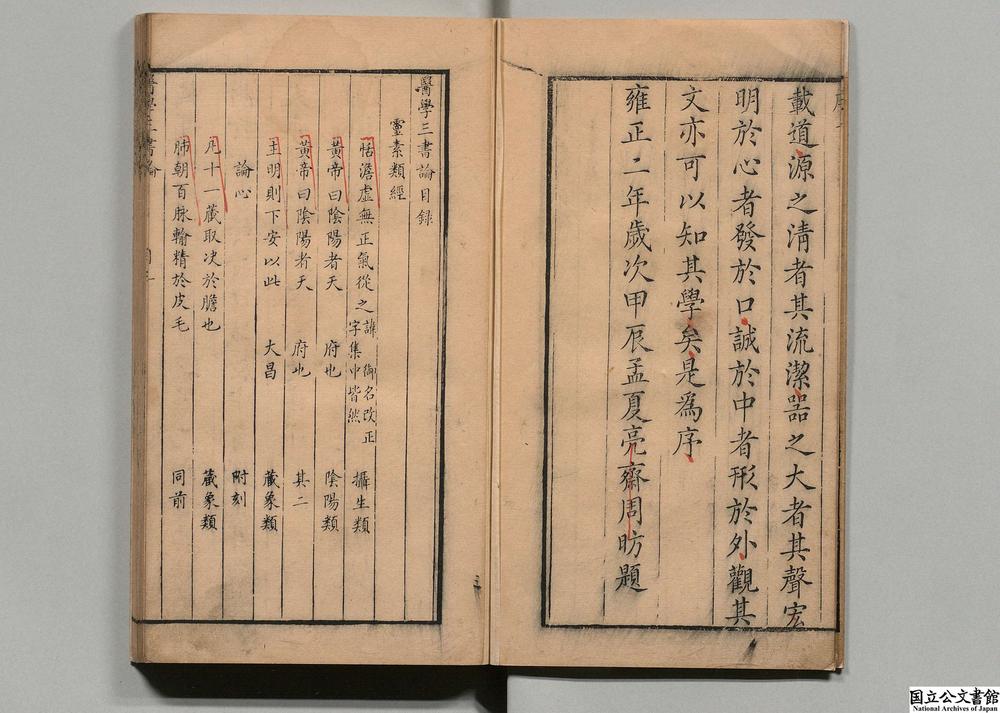 載道源之清者其流潔器之大者其聲宏
明於心者發於口誠於中者形於外觀其
文亦可以知其學矣是為序
雍正二年歲次甲辰孟夏亮齋周昉題
醫學三書論目録
靈素類經
恬澹虛無正氣從之諱御名改正字集中皆然 攝生類
黃帝曰陰陽者天 府也 陰陽類
黃帝曰陰陽者天 府也 其二
主明則下安以此 大昌 藏象類
論心 附刻
凡十一藏取决於膽也 藏象類
肺朝百脉輸精於皮毛 同前
醫學三書論
国立公文書館
National Archives of Japan